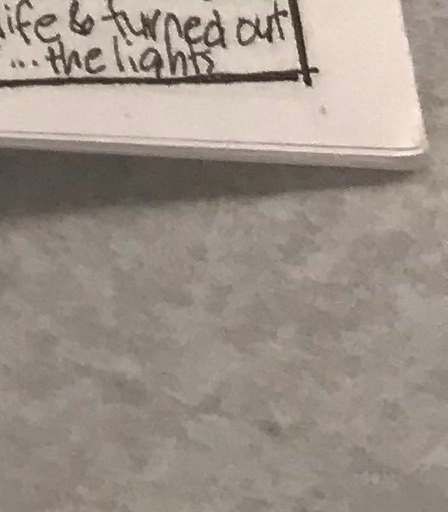 life & turned out
...the lights